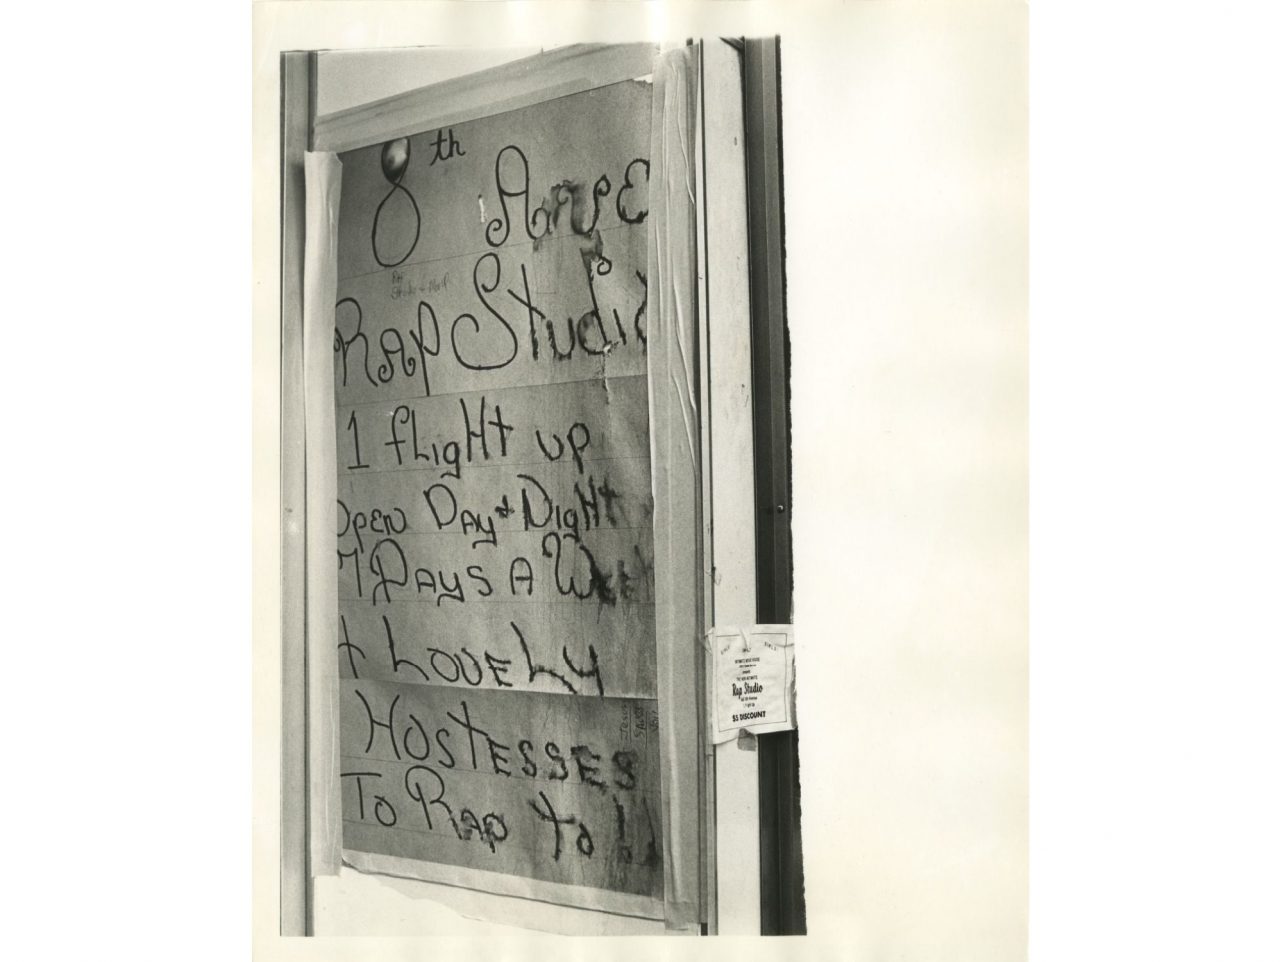 8th Ave
Rap Studio
1 fLigHt up
Open Day + Night
7 Days A Week
+ LovELy
HosTesses
Jesus
To Rap to !!
Rap Studio
$5 DISCOUNT